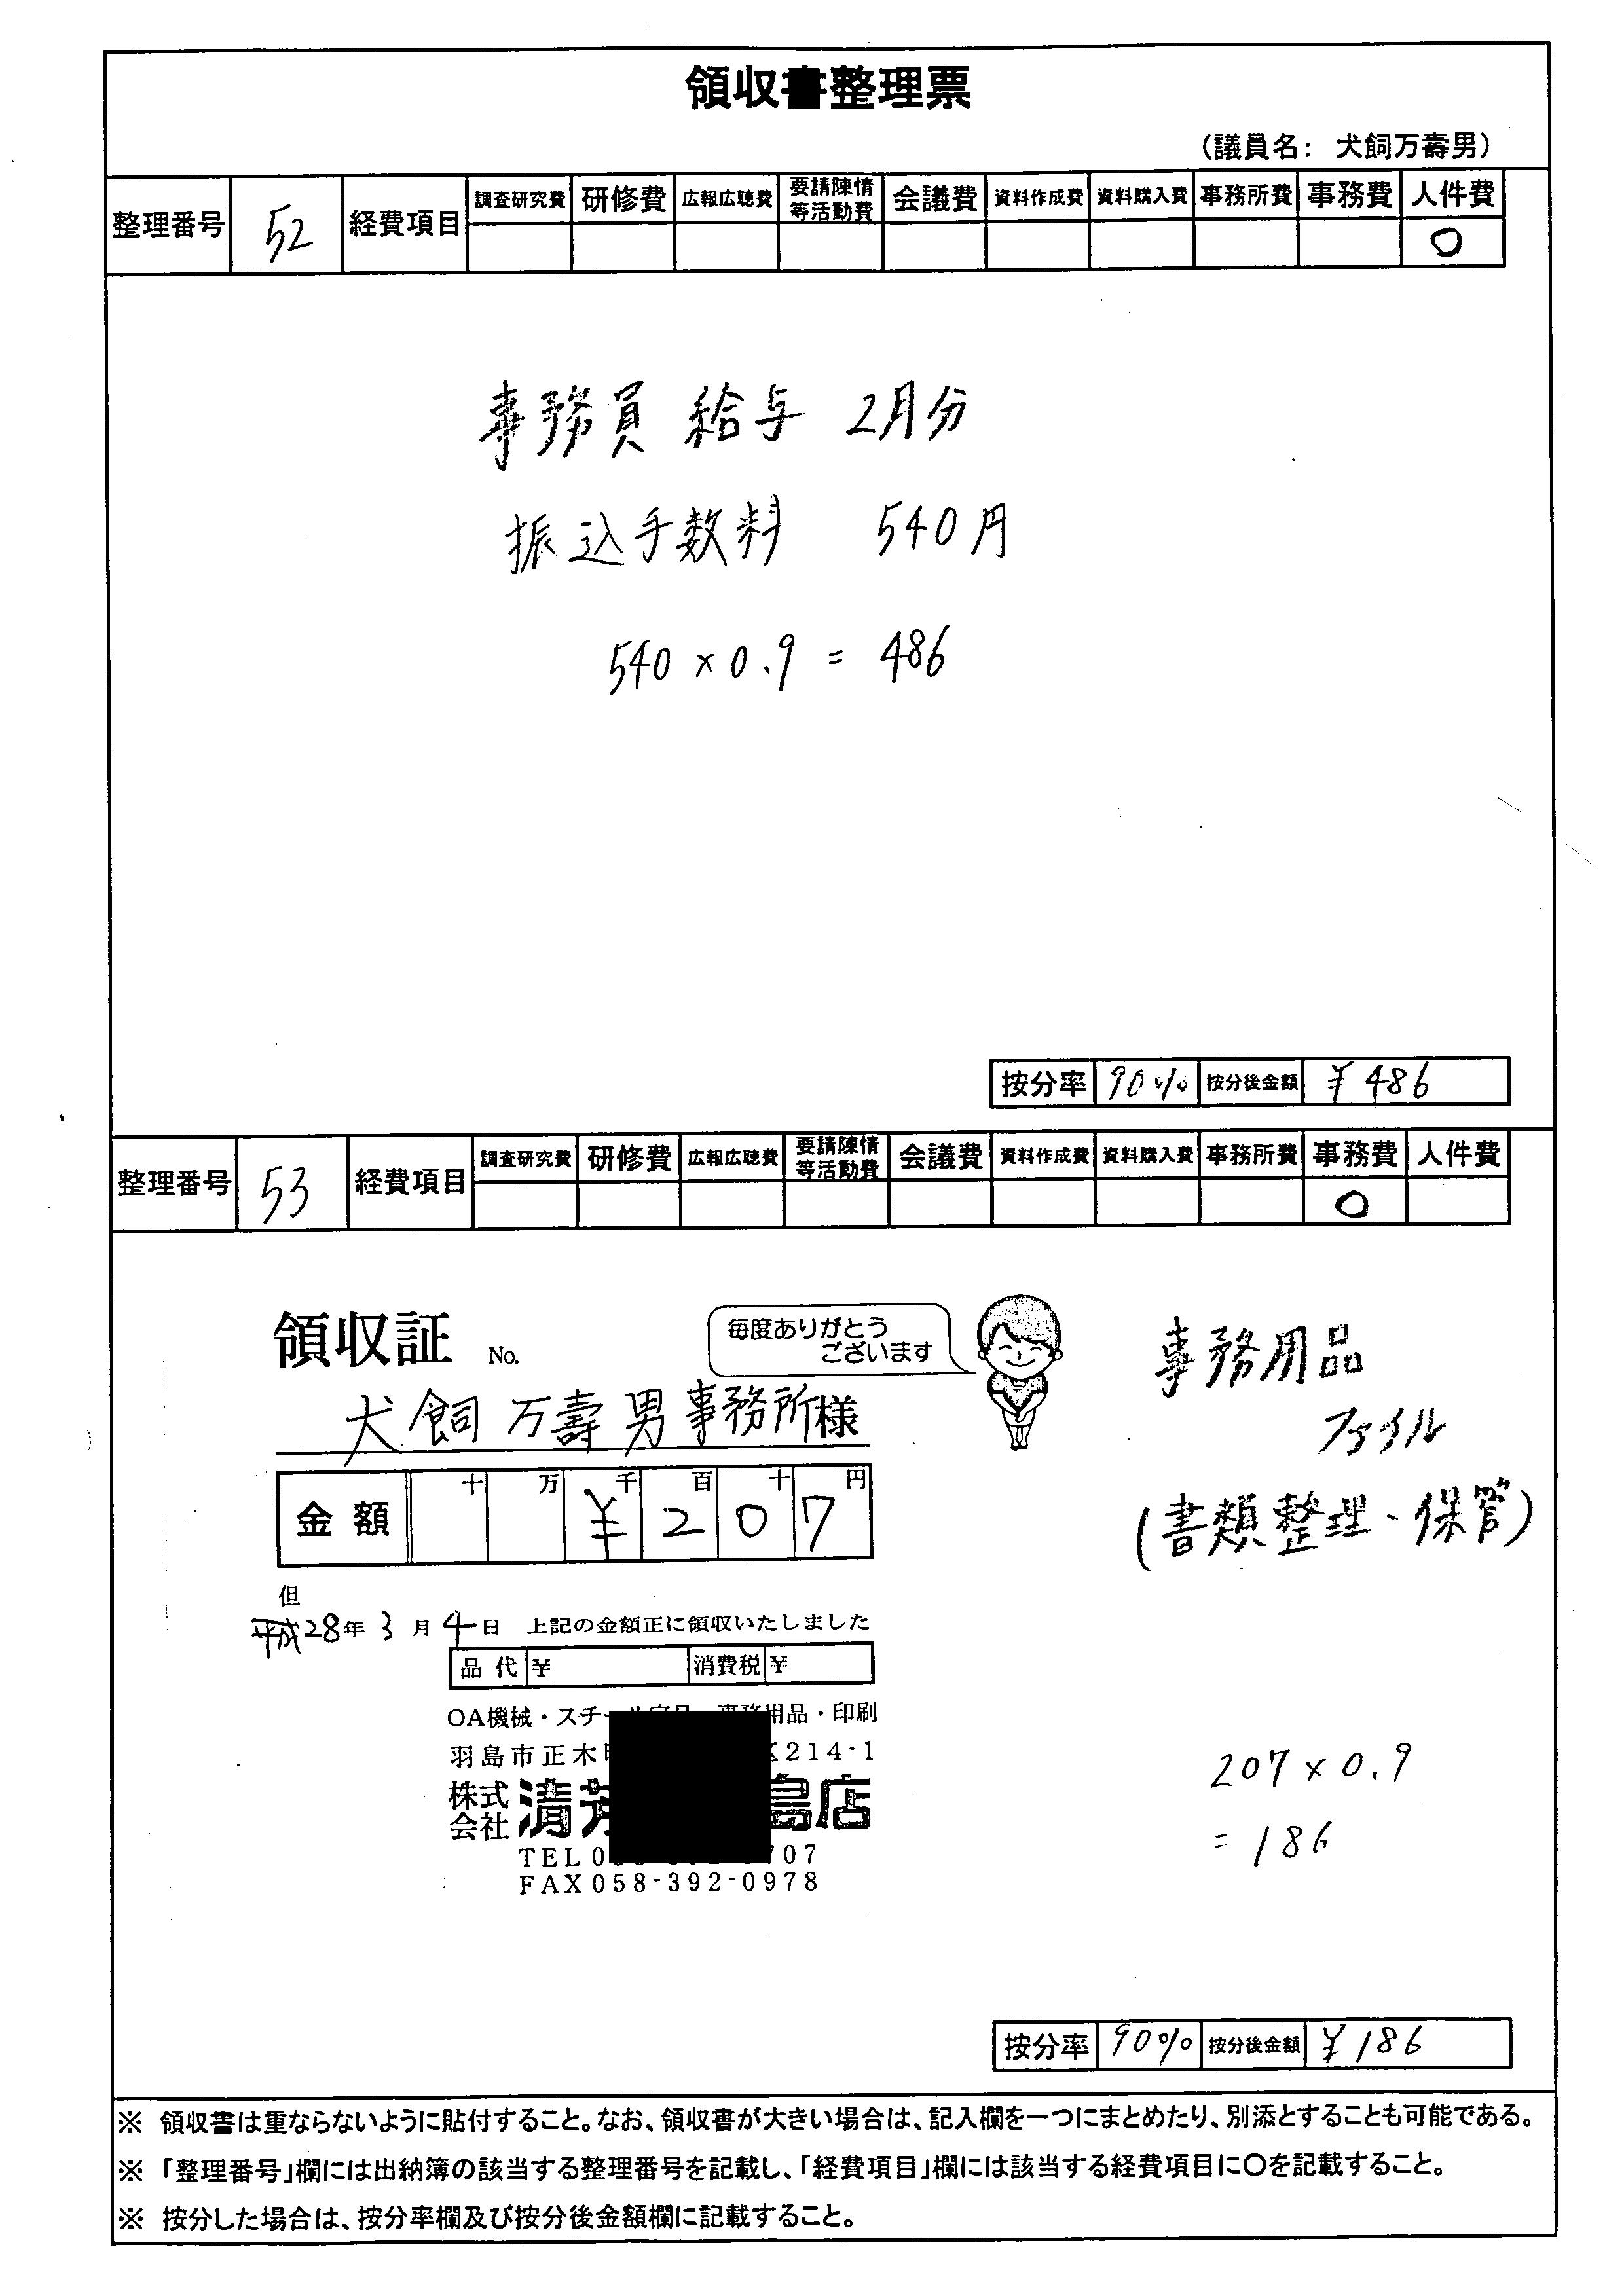 領収書整理票
（議員名： 犬飼万壽男）
整理番号 52 経費項目 調査研究費 研修費 広報広聴費 要請陳情等活動費 会議費 資料作成費 資料購入費 事務所費 事務費 人件費
○
事務員 給与 2月分
振込手数料 540円
540 × 0.9 = 486
按分率 90% 按分後金額 ¥486
整理番号 53 経費項目 調査研究費 研修費 広報広聴費 要請陳情等活動費 会議費 資料作成費 資料購入費 事務所費 事務費 人件費
○
領収証 No.
毎度ありがとう
ございます
犬飼万壽男事務所様
金額 十 万 千 百 十 円
¥207
但
平成28年3月4日 上記の金額正に領収いたしました
品代 ¥ 消費税 ¥
OA機械・スチール家具・事務用品・印刷
羽島市正木 214-1
株式会社 清 島店
TEL 0 707
FAX 058-392-0978
事務用品
ファイル
(書類整理、保管)
207 × 0.9
= 186
按分率 90% 按分後金額 ¥186
※ 領収書は重ならないように貼付すること。なお、領収書が大きい場合は、記入欄を一つにまとめたり、別添とすることも可能である。
※ 「整理番号」欄には出納簿の該当する整理番号を記載し、「経費項目」欄には該当する経費項目に○を記載すること。
※ 按分した場合は、按分率欄及び按分後金額欄に記載すること。